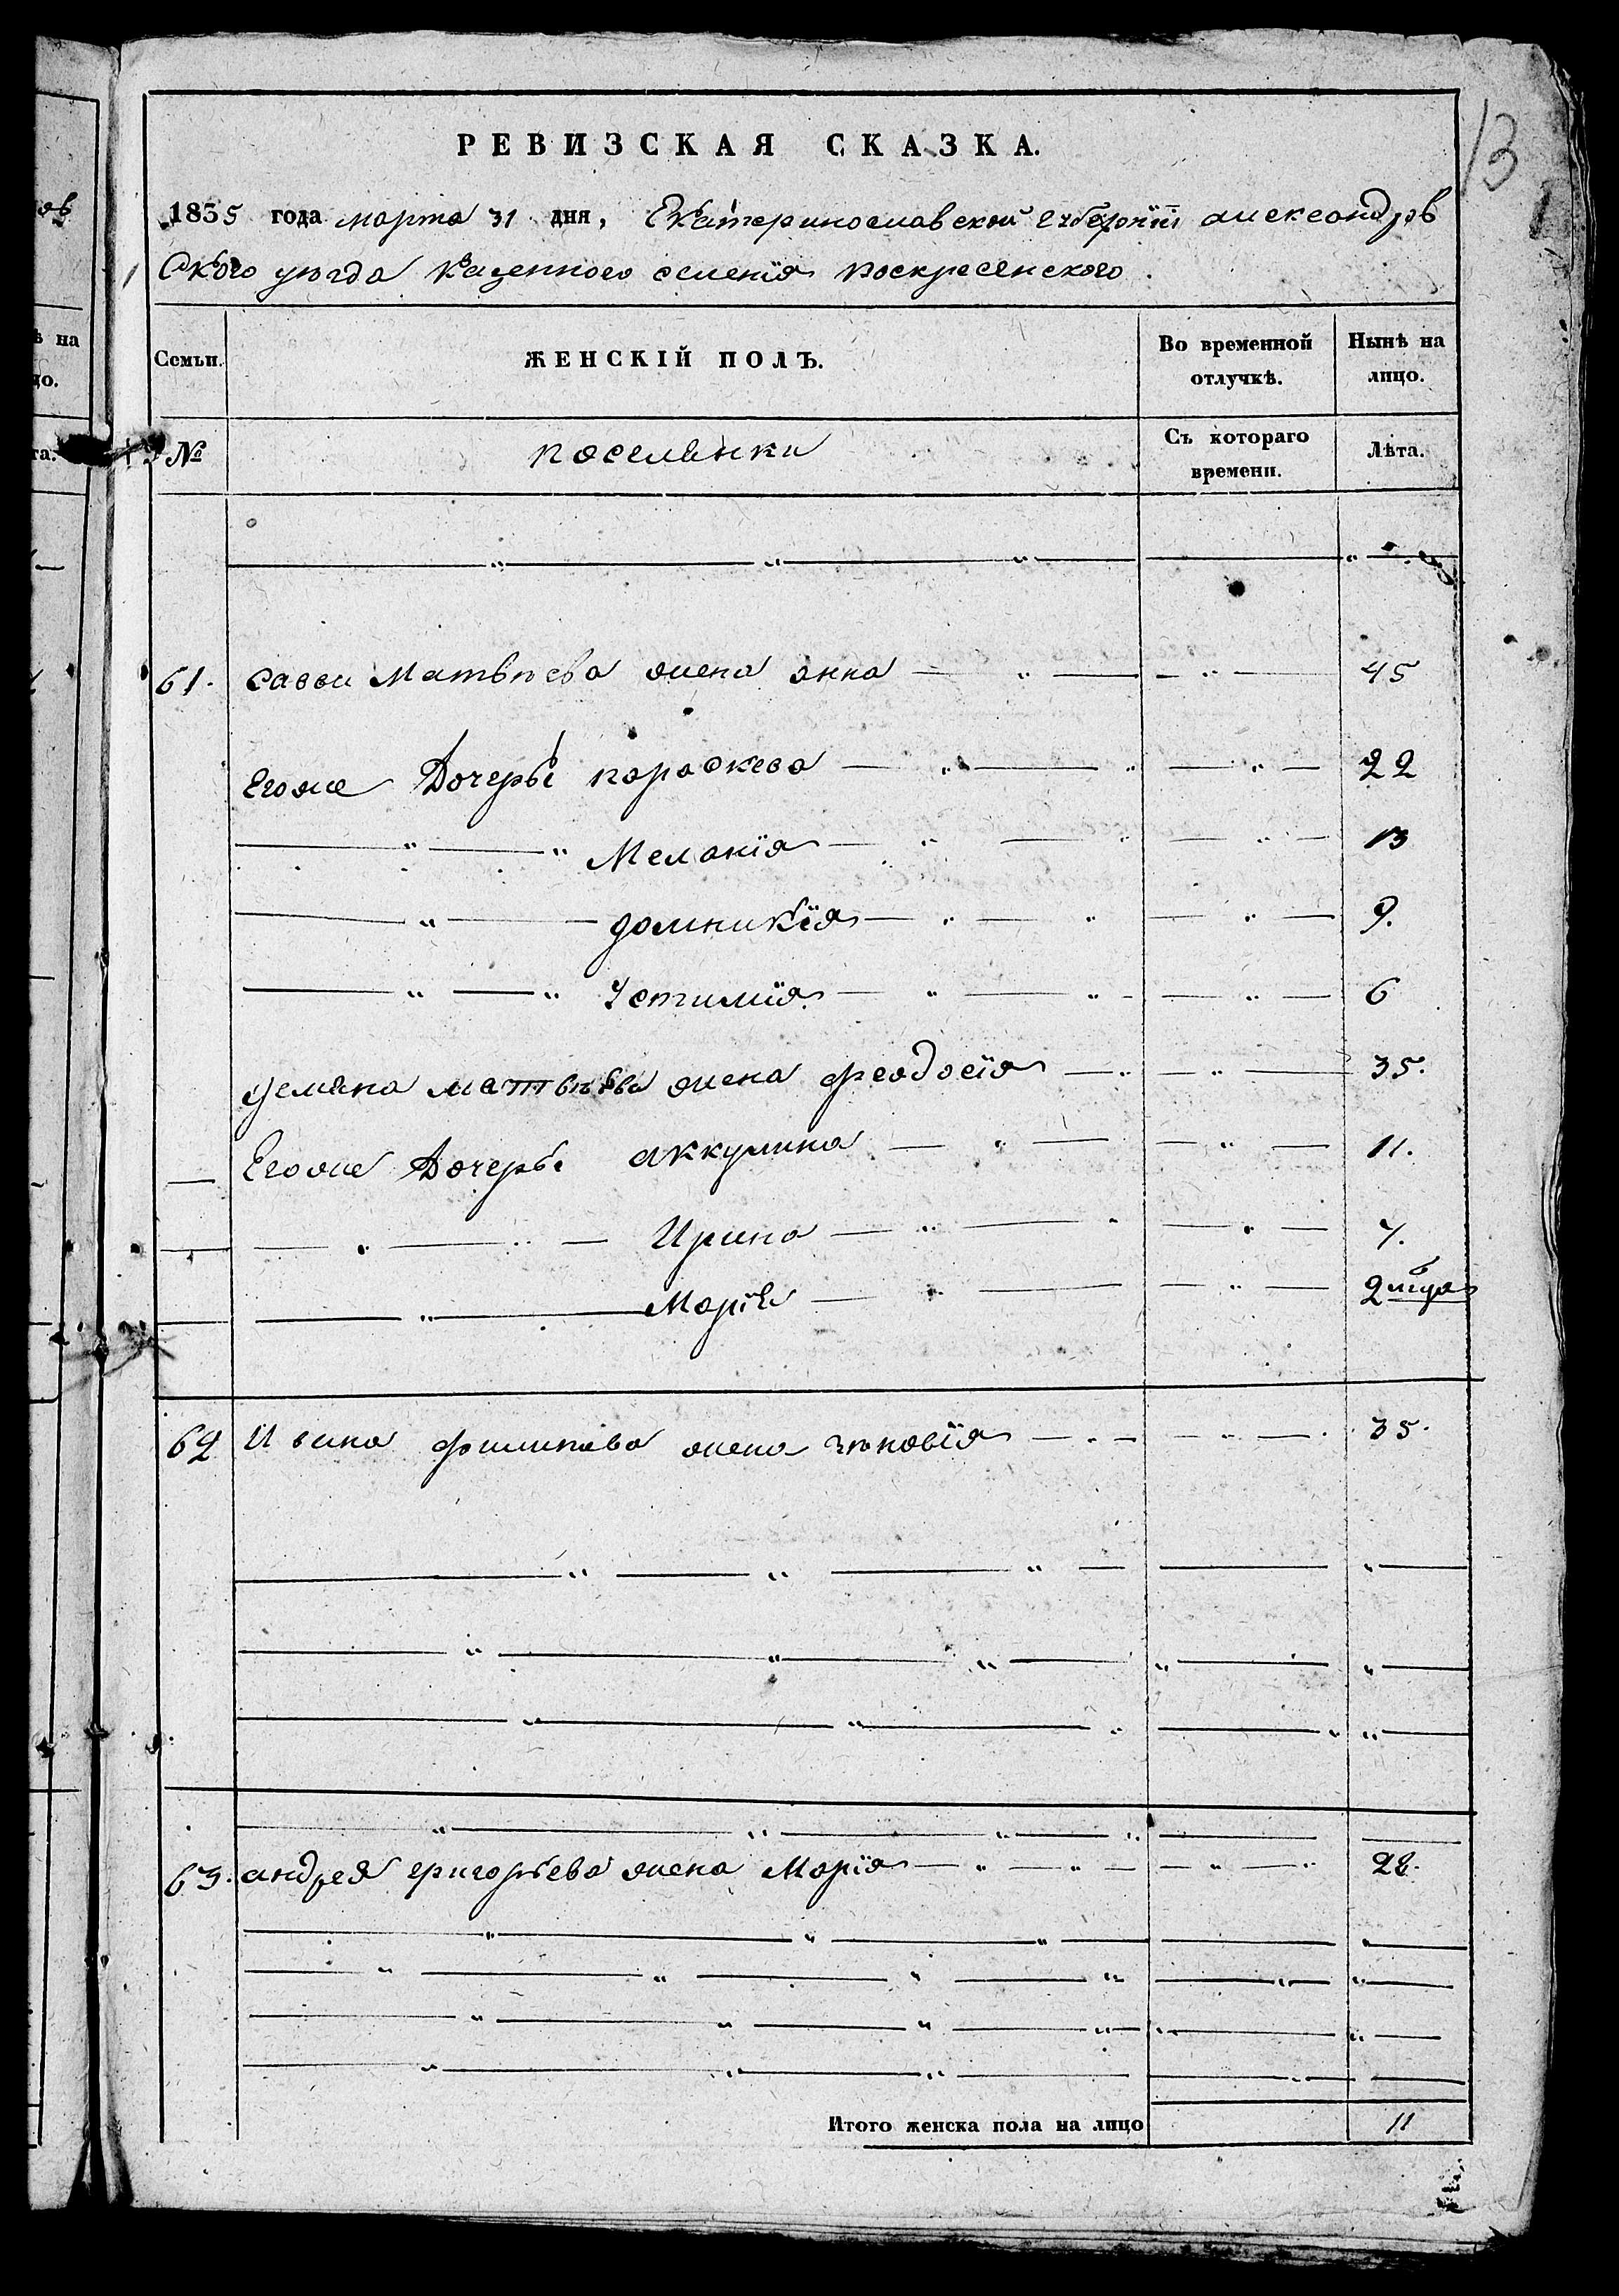 13
РЕВИЗСКАЯ СКАЗКА.
1835 года марта 31 дня, Екатеринославской губернїи александров
ского уѣзда казенного селенїя воскресенского.
Семьи. ЖЕНСКІЙ ПОЛЪ. Во временной отлучкѣ. Нынѣ на лицо.
№ поселянки Съ котораго времени. Лѣта.
61. Саввы Матвѣева жена анна 45
Егоже Дочерьи параскева 22
Меланїя 13
домникїя 9.
Устимїя 6
демяна матвѣева жена феодосїя 35.
Егоже Дочерьи аккулина 11.
Ирина 7.
Марїя 2 мѣся
62 Ивана филипова жена зѣновїя 35.
63. андрея григорьева жена Марїя 28.
Итого женска пола на лицо 11
ѣ на
цо.
та.